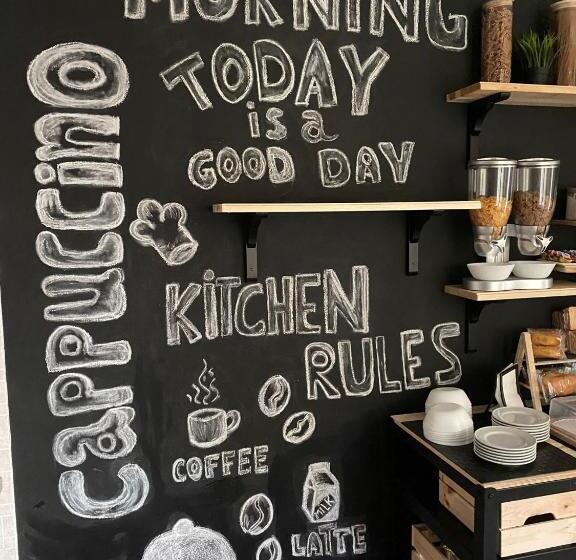 MORNING
TODAY
is a
GOOD DAY
cappuccino
KiTCHEN
RULES
COFFEE
MILK
LATTE